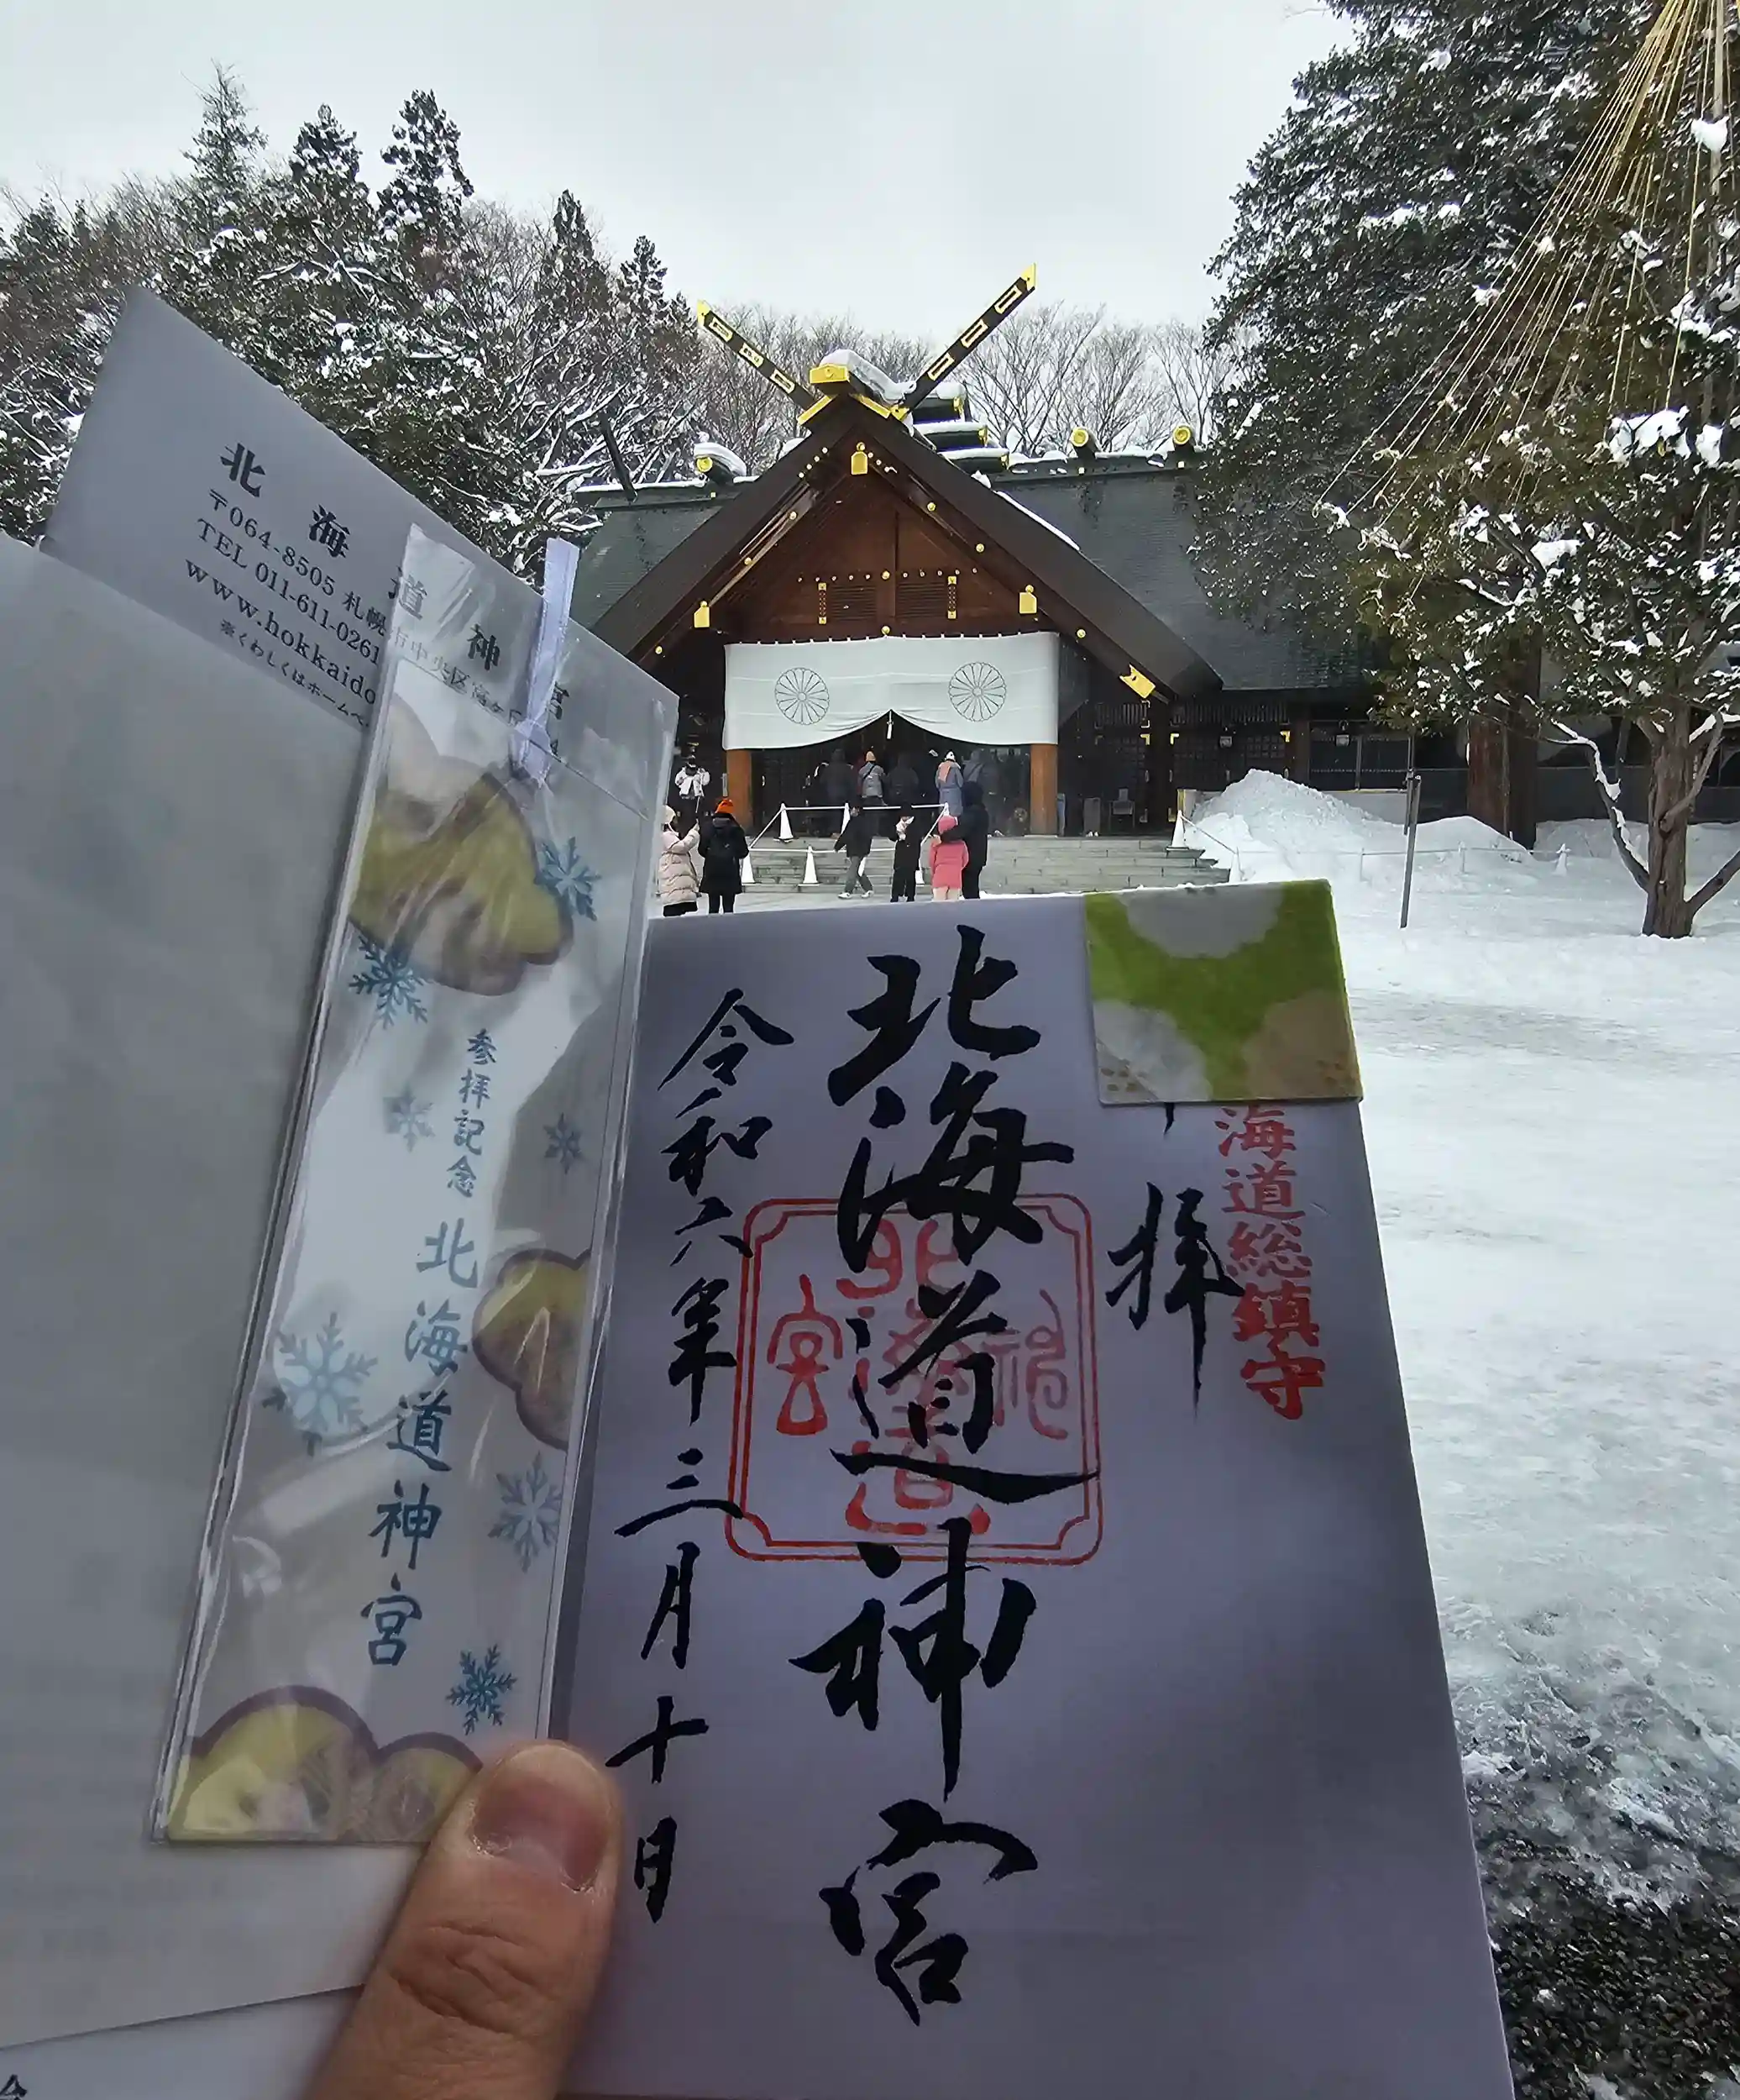 北海道神宮
〒064-8505 札幌市中央区宮ヶ
TEL 011-611-0261
www.hokkaido
※くわしくはホームペ
参拝記念
北海道神宮
海道総鎮守
拝
北海道神宮
令和六年三月十日
北海道神宮